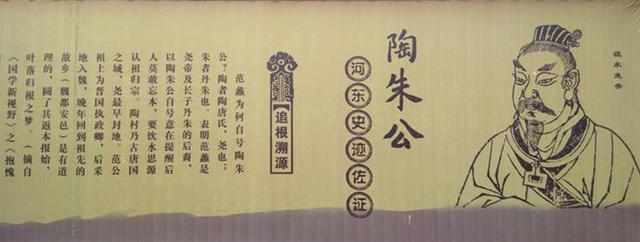 陶朱公
河东史迹佐证
追根溯源
范蠡为何自号陶朱
公？陶者陶唐氏，尧也；
朱者丹朱也。表明范蠡是
尧帝及长子丹朱的后裔，
以陶朱公自号意在提醒后
人莫敢忘本，要饮水思源
认祖归宗。陶村乃古唐国
之域，尧最早封地。范公
祖上为晋国执政卿，后采
地入魏，晚年回到祖先的
故乡（魏都安邑）是有道
理的，圆了其返本报始，
叶落归根之梦。（摘自
《国学新视野》之《抱愧